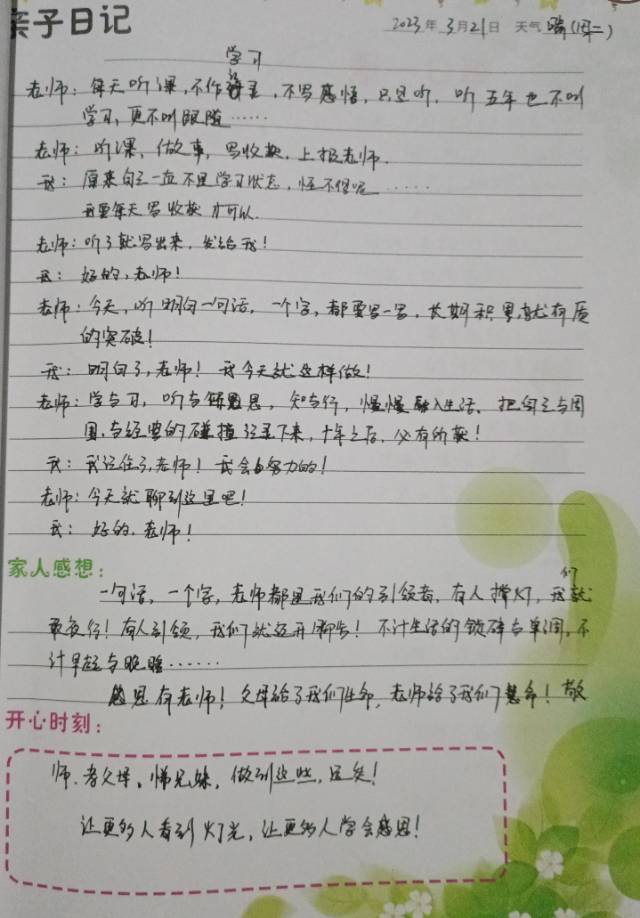 亲子日记
2023年3月21日 天气 晴(周二)
学习
老师：每天听课，不作笔录，不写感悟，只是听，听五年也不叫
学习，更不叫跟随……
老师：听课，做事，写收获，上报老师．
我：原来自己一直不是学习状态，怪不得呢……
我要每天写收获才可以．
老师：听了就写出来，发给我！
我：好的，老师！
老师：今天，听明白一句话，一个字，都要写一写，长期积累，就有质
的突破！
我：明白了，老师！我今天就这样做！
老师：学与习，听与思，知与行，慢慢融入生活、把自己与周
围，与经典的碰撞记录下来，十年之后，必有所获！
我：我记住了，老师！我会努力的！
老师：今天就聊到这里吧！
我：好的．老师！
家人感想：
一句话，一个字，老师都是我们的引领者，有人撑灯，我们就
敢夜行！有人引领，我们就迈开脚步！不计生活的锁碎与单调，不
计早起与晚睡……
感恩有老师！父母给了我们生命，老师给了我们慧命！敬
开心时刻：
师．孝父母、悌兄妹，做到这些，足矣！
让更多人看到灯光，让更多人学会感恩！